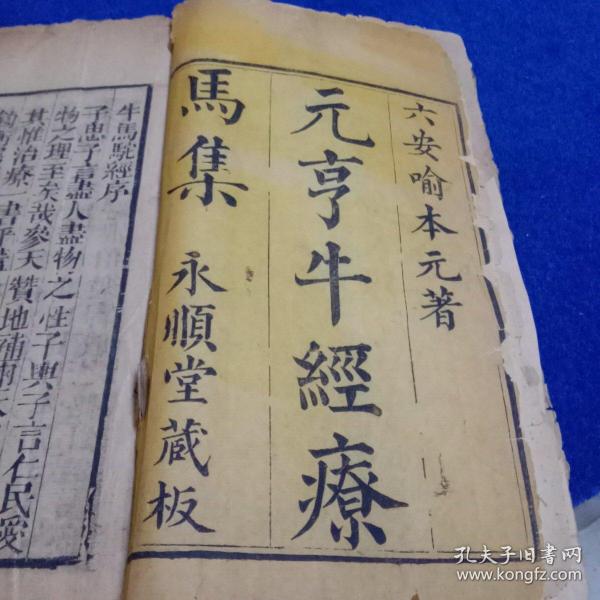 六安喻本元著
元亨牛經療
馬集 永順堂藏板
牛馬駝經序
子思子言盡人盡物之性子輿子言仁民愛
物之理至矣哉參天贊地補
其惟治療
孔夫子旧書网
www.kongfz.com